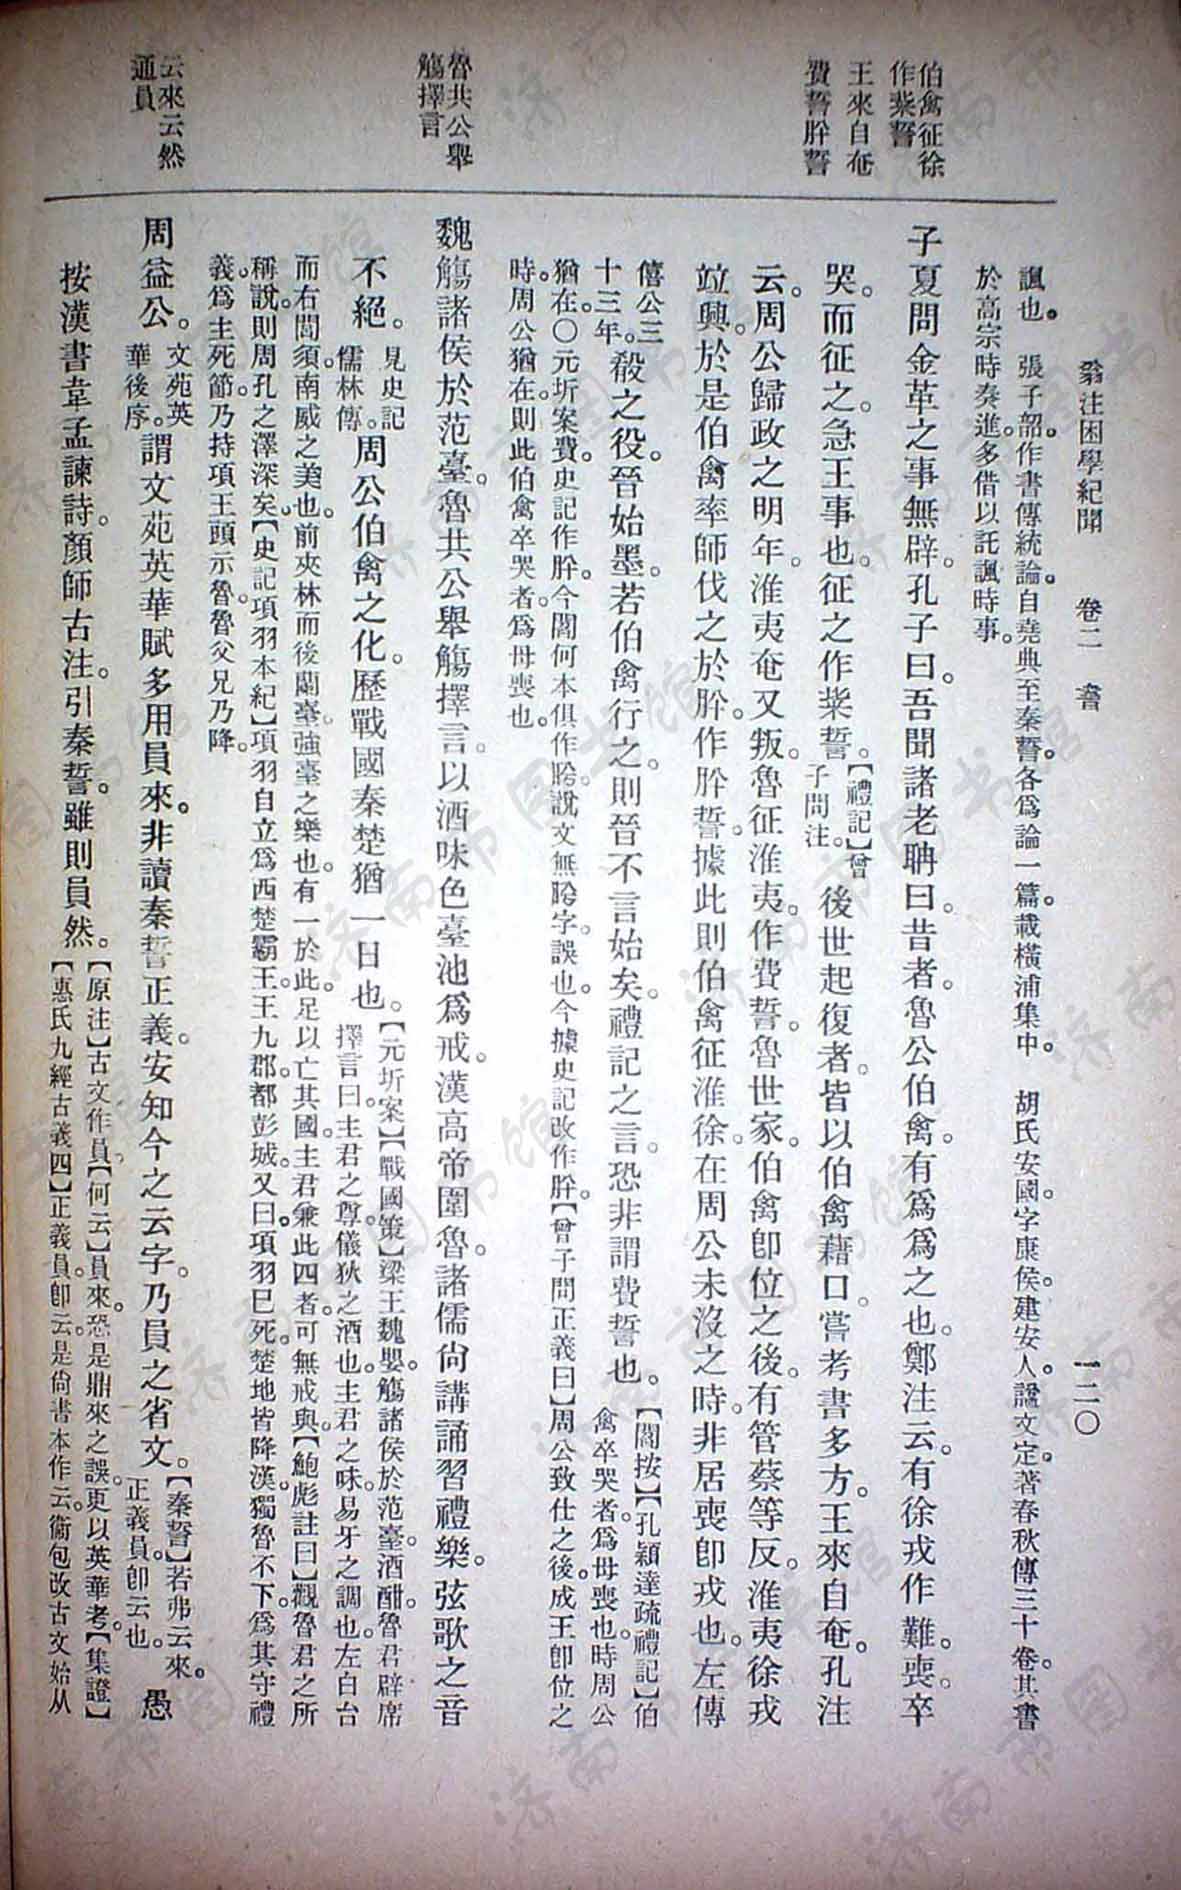 翁注困學紀聞　卷二　書　一二〇
伯禽征徐
作粊誓
王來自奄
費誓肸誓
魯共公舉
觴擇言
云來云然
通員
諷也。張子韶。作書傳統論。自堯典至秦誓。各爲論一篇。載橫浦集中。　胡氏安國。字康侯。建安人。諡文定。著春秋傳三十卷。其書
於高宗時奏進。多借以託諷時事。
子夏問金革之事無辟。孔子曰。吾聞諸老聃曰。昔者。魯公伯禽。有爲爲之也。鄭注云。有徐戎作難。喪。卒
哭。而征之。急王事也。征之作粊誓。【禮記】曾
子問注。後世起復者。皆以伯禽藉口。嘗考書多方。王來自奄。孔注
云。周公歸政之明年。淮夷奄又叛。魯征淮夷。作費誓。魯世家。伯禽卽位之後。有管蔡等反。淮夷徐戎
竝興。於是伯禽率師伐之於肸。作肸誓。據此則伯禽征淮徐。在周公未沒之時。非居喪卽戎也。左傳
僖公三
十三年。殽之役。晉始墨。若伯禽行之。則晉不言始矣。禮記之言。恐非謂費誓也。【閻按】【孔穎達疏禮記】伯
禽卒哭者。爲母喪也。時周公
猶在。〇元圻案。費。史記作肸。今閻何本俱作肹。說文無肹字。誤也。今據史記改作肸。【曾子問正義曰】周公致仕之後。成王卽位之
時。周公猶在。則此伯禽卒哭者。爲母喪也。
魏觴諸侯於范臺。魯共公舉觴擇言。以酒味色臺池爲戒。漢高帝圍魯。諸儒尚講誦習禮樂。弦歌之音
不絕。見史記
儒林傳。周公伯禽之化。歷戰國秦楚猶一日也。【元圻案】【戰國策】梁王魏嬰。觴諸侯於范臺。酒酣。魯君辟席
擇言曰。主君之尊。儀狄之酒也。主君之味。易牙之調也。左白台
而右閭須。南威之美也。前夾林而後蘭臺。強臺之樂也。有一於此。足以亡其國。主君兼此四者。可無戒與。【鮑彪註曰】觀魯君之所
稱說。則周孔之澤深矣。【史記項羽本紀】項羽自立爲西楚霸王。王九郡。都彭城。又曰。項羽已死。楚地皆降漢。獨魯不下。爲其守禮
義。爲主死節。乃持項王頭示魯。魯父兄乃降。
周益公。文苑英
華後序。謂文苑英華賦多用員來。非讀秦誓正義。安知今之云字。乃員之省文。【秦誓】若弗云來。
正義。員卽云也。愚
按漢書韋孟諫詩。顏師古注。引秦誓。雖則員然。【原注】古文作員。【何云】員來。恐是鼎來之誤。更以英華考。【集證】
【惠氏九經古義四】正義。員卽云。是尚書本作云。衞包改古文始从